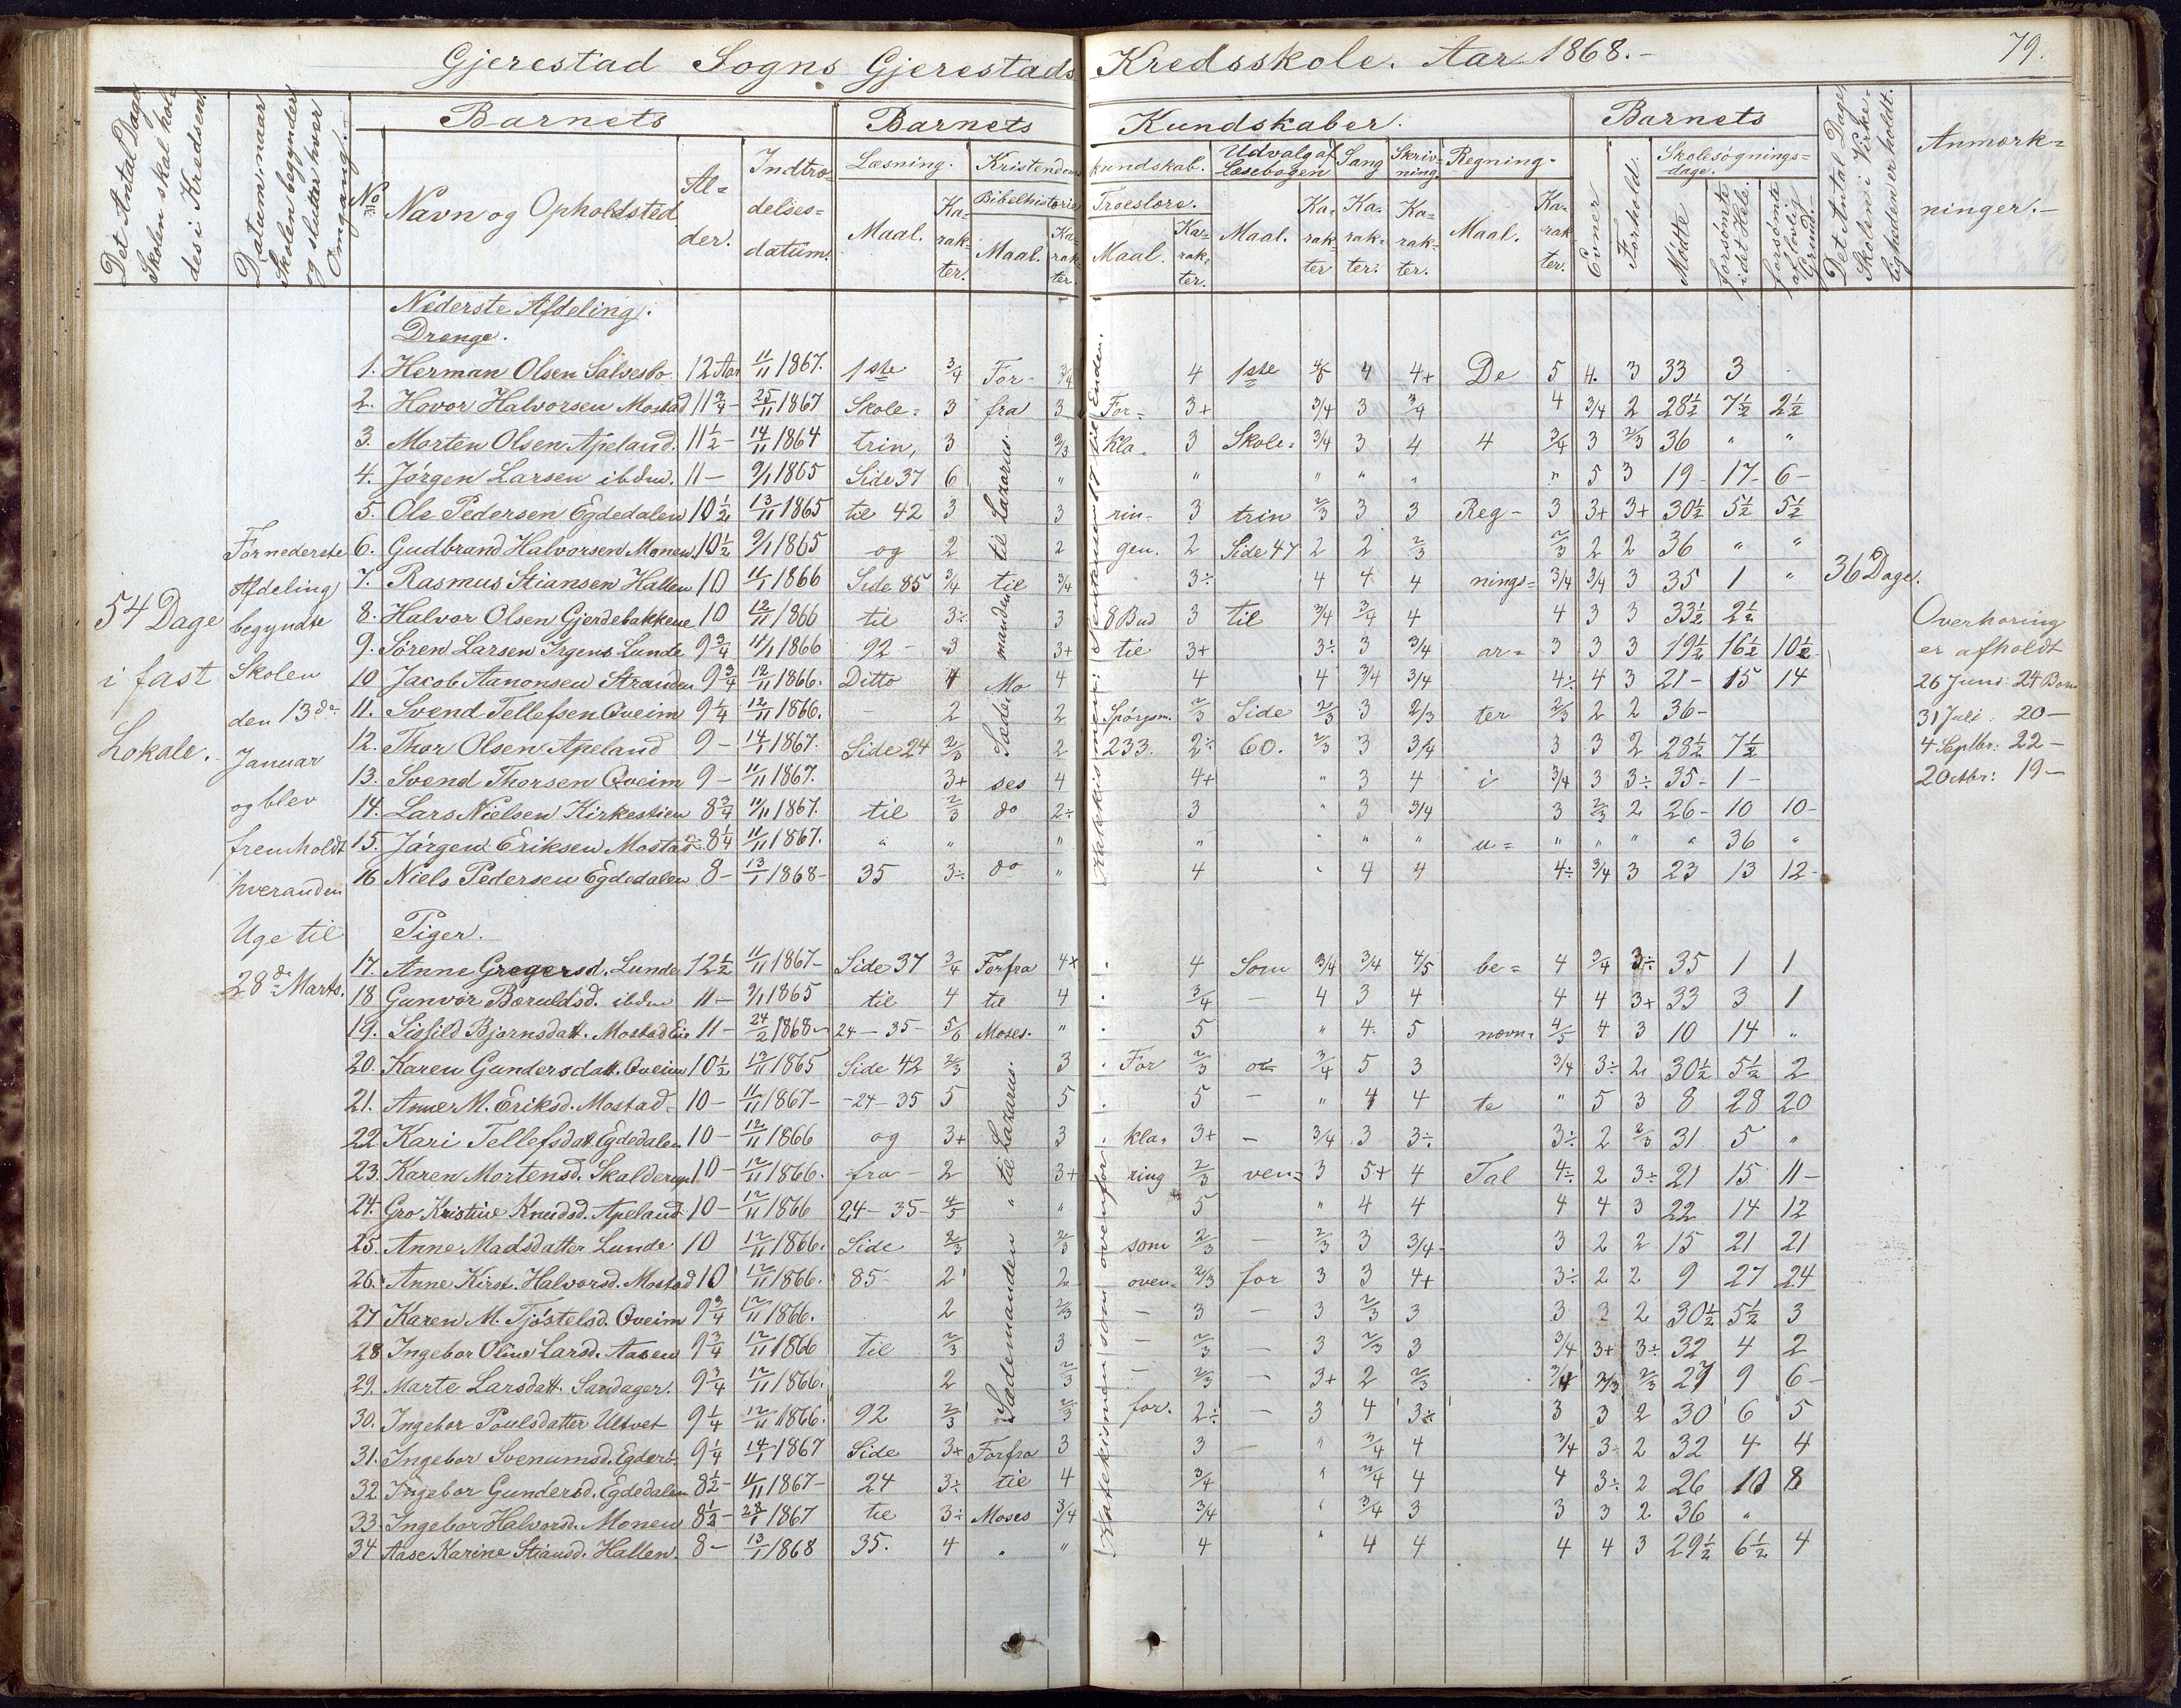 Gjerestad Sogns Gjerestads Kredsskole. Aar 1868.-
79.
Det Antal Dage Skolen skal holdes i Kredsen.
Datum, naar Skolen begynder og slutter hver Omgang.
No
Barnets
Navn og Opholdsted
Alder.
Indtrædelsesdatum.
Barnets Kundskaber.
Læsning.
Maal.
Karakter.
Kristendomskundskab.
Bibelhistorie
Maal.
Karakter.
Troeslære.
Maal.
Karakter.
Udvalg af Læsebogen
Maal.
Karakter
Sang
Karakter.
Skrivning.
Karakter.
Regning.
Maal.
Karakter.
Barnets
Evner
Forhold.
Skolesøgningsdage.
Mødte
forsømte i det Hele.
forsømte af lovlig Grund.
Det Antal Dage Skolen i Virkeligheden er holdt.
Anmærkninger.-
54 Dage
i fast
Lokale.
For nederste
Afdeling
begyndte
Skolen
den 13de
Januar
og blev
fremholdt
hveranden
Uge til
28de Marts.
Nederste Afdeling.
Drenge.
1. Herman Olsen Salvesbo 12 Aar 11/11 1867. 1ste 3/4 For- 3/4 4 1ste 4/5 4 4+ De 5 4. 3 33 3
2. Hovor Halvorsen Mostad 11 3/4 - 25/11 1867 Skole= 3 fra 3 For= 3+ 3/4 3 3/4 4 3/4 2 28 1/2 7 1/2 2 1/2
3. Morten Olsen Apeland. 11 1/2 - 14/11 1864 trin, 3 2/3 kla= 3 Skole= 3/4 3 4 4 3/4 3 2/3 36 " "
4. Jørgen Larsen ibdm. 11 - 9/1 1865 Side 37 6 " " " " " " 5 3 19 - 17 - 6 -
5. Ole Pedersen Egdedalen 10 1/2 13/11 1865 til 42 3 3 rin- 3 trin 2/3 3 3 Reg- 3 3+ 3+ 30 1/2 5 1/2 5 1/2
6. Gudbrand Halvorsen Monen 10 1/2 9/1 1865 og 2 2 gen. 2 Side 47 2 2 2/3 2/3 2 2 36 " "
7. Rasmus Stiansen Hallen 10 11/1 1866 Side 85 3/4 til 3/4 3÷ 4 4 4 nings= 3/4 3/4 3 35 1 "
8. Halvor Olsen Gjerdebakkene 10 12/11 1866 til 3÷ 3 8 Bud 3 til 3/4 3/4 4 4 3 3 33 1/2 2 1/2
9. Søren Larsen Irgens Lunde 9 3/4 11/1 1866 92 - 3 3+ til 3+ 3÷ 3 3/4 ar= 3 3 3 19 1/2 16 1/2 10 1/2
10 Jacob Aanonsen Stranden 9 3/4 12/11 1866. Ditto 4 Mo 4 4 4 3/4 3/4 4÷ 4 3 21 - 15 14
11. Svend Tellefsen Qveim 9 1/4 12/11 1866. - 2 2 Spørgsm. 2/3 Side 2/3 3 2/3 ter 2/3 2 2 36 -
12. Thor Olsen Apeland 9 - 14/1 1867. Side 24 2/3 2 233. 2÷ 60. 2/3 3 3/4 3 3 2 28 1/2 7 1/2
13. Svend Thorsen Qveim 9 - 11/11 1867. 3+ ses 4 4+ " 3 4 i 3/4 3 3÷ 35 - 1 -
14. Lars Nielsen Kirkestien 8 3/4 11/11 1867. til 2/3 do 2÷ 3 " 3 3/4 3 2/3 2 26 - 10 10 -
15. Jørgen Eriksen Mostad 8 1/4 11/11 1867. " " " " " " " u= " " " " 36 "
16 Niels Pedersen Egdedalen 8 - 13/1 1868 - 35 3÷ do " 4 " 4 4 4÷ 3/4 3 23 13 12 -
Sædemanden til Lazarus.
Katekismen: Sentensen 17 til Enden.
36 Dage.
Overhøring
er afholdt
26 Juni 24 Børn
31 Juli: 20 -
4 Septbr: 22 -
2 Octbr: 19 -
Piger.
17. Anne Gregersd. Lunde 12 1/2 11/11 1867 - Side 37 3/4 Forfra 4+ 4 Som 3/4 3/4 4/5 be= 4 3/4 3÷ 35 1 1
18 Gunvor Boruldsd. ibdm 11 - 9/1 1865 til 4 til 4 3/4 - 4 3 4 4 4 3+ 33 3 1
19. Sissild Bjørnsdatt. Mostad Eie 11 - 24/2 1868 - 24 - 35 - 5/6 Moses. " 5 " 4 5 nævn= 4/5 4 3 10 14 "
20. Karen Gundersdatt. Qveim 10 1/2 13/11 1865 Side 42 2/3 3 For 2/3 o= 3/4 5 3 3/4 3÷ 2 30 1/2 5 1/2 2
21. Anne M. Eriksd. Mostad 10 - 11/11 1867 - - 24 - 35 5 5 5 - " 4 4 te " 5 3 8 28 20
22 Kari Tellefsdatt. Egdedalen 10 - 12/11 1866 og 3+ 3 kla= 3+ - 3/4 3 3÷ 3÷ 2 2/3 31 5 "
23. Karen Mortensd. Skalderup 10 - 12/11 1866. fra - 2 3+ ring 2/3 ven= 3 5+ 4 Tal 4÷ 2 3÷ 21 15 11 -
24. Gro Kristine Knudsd. Apeland 10 - 12/11 1866 24 - 35 - 4/5 " 5 " 4 4 4 4 3 22 14 12
25. Anne Madsdatter Lunde 10 12/11 1866. Side 2/3 2/3 som 2/3 - 2/3 3 3/4 3 2 2 15 21 21
26. Anne Kirst. Halvorsd. Mostad 10 12/11 1866. 85 2 2 oven= 2/3 for 3 3 4+ 3÷ 2 2 9 27 24
27 Karen M. Tjøstelsd. Qveim 9 3/4 12/11 1866. 2 2/3 - 3 - 3 2/3 3 3 3 2 30 1/2 5 1/2 3
28 Ingebor Oline Larsd. Aasen 9 3/4 12/11 1866 til 2/3 3 - 2/3 - 3 2/3 3 3/4 3+ 3÷ 32 4 2
29. Marte Larsdatt. Sandager. 9 3/4 12/11 1866. 2 2/3 - 2/3 - 3+ 2 2/3 3/4 2/3 2/3 27 9 6 -
30. Ingebor Poulsdatter Ultvet 9 1/4 12/11 1866. 92 2/3 2/3 for. 2÷ - 3 4 3÷ 3 3 2 30 6 5
31. Ingebor Svenumsd. Egderö 9 1/4 14/1 1867 Side 3+ Forfra 3 3 - " 3/4 4 3/4 3÷ 2 32 4 4
32 Ingebor Gundersd. Egdedalen 8 1/2 - 11/11 1867 - 24 3÷ til 4 3/4 " 3/4 4 4 3÷ 2 26 10 8
33. Ingebor Halvorsd. Monen 8 1/2 - 28/1 1867 til 3÷ Moses 3/4 3/4 " 3/4 3 3 3 2 36 "
34 Aase Karine Stiansd. Hallen. 8 - 13/1 1868 35. 4 " " 4 " 4 4 4 4 3 29 1/2 6 1/2 4
Sædemanden til Lazarus.
Katekismen som ovenfor